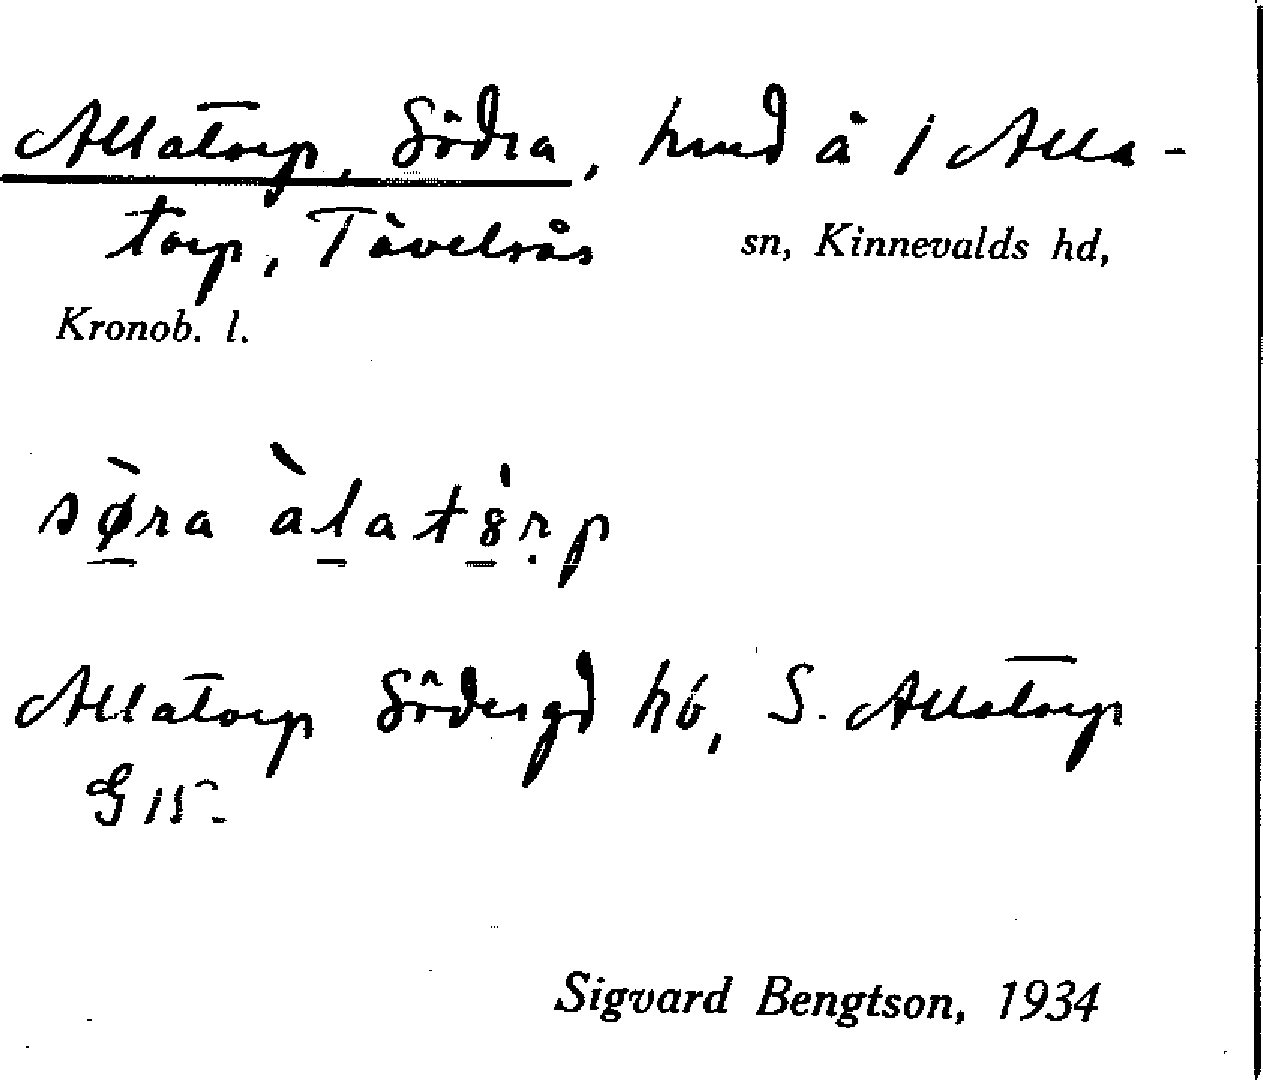 Allatorp, Södra, hmd å 1 Alla-
torp, Tävelsås sn, Kinnevalds hd,
Kronob. l.
sø̀ra àlatȣ́rp
Allatorp Södergd hb, S. Allatorp
G 15.
Sigvard Bengtson, 1934